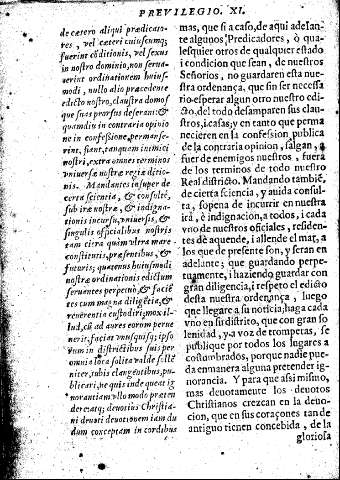 PREVILEGIO. XI.
de cætero aliqui prædicato-
res, vel cæteri cuiuscunq;
fuerint cõditionis, vel sexus
in nostro dominio, non serua-
uerint ordinationem huius-
modi, nullo alio præcedente
edicto nostro, claustra domos
que suas prorsus deserant: &
quamdiu in contraria opinio
ne in confessione, permanse-
rint, fiant, tanquam inimici
nostri, extra omnes terminos
vniuersæ nostræ regiæ ditio-
nis. Mandantes insuper de
certa scientia, & consulte,
sub iræ nostræ, & indigna-
tionis incursu, vniuersis, &
singulis officialibus nostris
tam citra quàm vltra mare
constitutis, præsentibus, &
futuris; quatenus huiusmodi
nostræ ordinationis edictum
seruantes perpetuò, & faciẽ
tes cum magna diligẽtia, &
reuerentia custodiri; mox il-
lud, cũ ad aures eorum perue
nerit, faciat vnusquisq; ipso
rum in districtibus suis per
omnia loca solita valde sole
niter, tubis clangentibus, pu-
blicari, ne quis inde queat ig
norantiam vllo modo præten
dere: atq; deuotius Christia
ni deuoti deuotionem iam du
dum conceptam in cordibus
mas, que si a caso, de aqui adelan-
te algunos Predicadores, ò qua-
lesquier otros de qualquier estado
i condicion que sean, de nuestros
Señorios, no guardaren esta nue-
stra ordenança, que sin ser necessa
rio esperar algun otro nuestro edi-
cto, del todo desamparen sus clau-
stros, i casas; y en tanto que perma
necieren en la confession publica
de la contraria opinion, salgan, a
fuer de enemigos nuestros, fuera
de los terminos de todo nuestro
Real distrito. Mandando tambiẽ,
de cierta sciencia, y auida consul-
ta, sopena de incurrir en nuestra
ira, è indignacion, a todos, i cada
vno de nuestros oficiales, residen-
tes dè aquende, i allende el mar, a
los que de presente son, y seran en
adelante; que guardando perpe-
tuamente, i haziendo guardar con
gran diligencia, i respeto el edicto
desta nuestra ordenança, luego
que llegare a su noticia; haga cada
vno en su distrito, que con gran so
lenidad, y a voz de trompetas, se
publique por todos los lugares a
costumbrados, porque nadie pue-
da en manera alguna pretender ig-
norancia. Y para que assi mismo,
mas deuotamente los deuotos
Christianos crezcan en la deuo-
cion, que en sus coraçones tan de
antiguo tienen concebida, de la
gloriosa